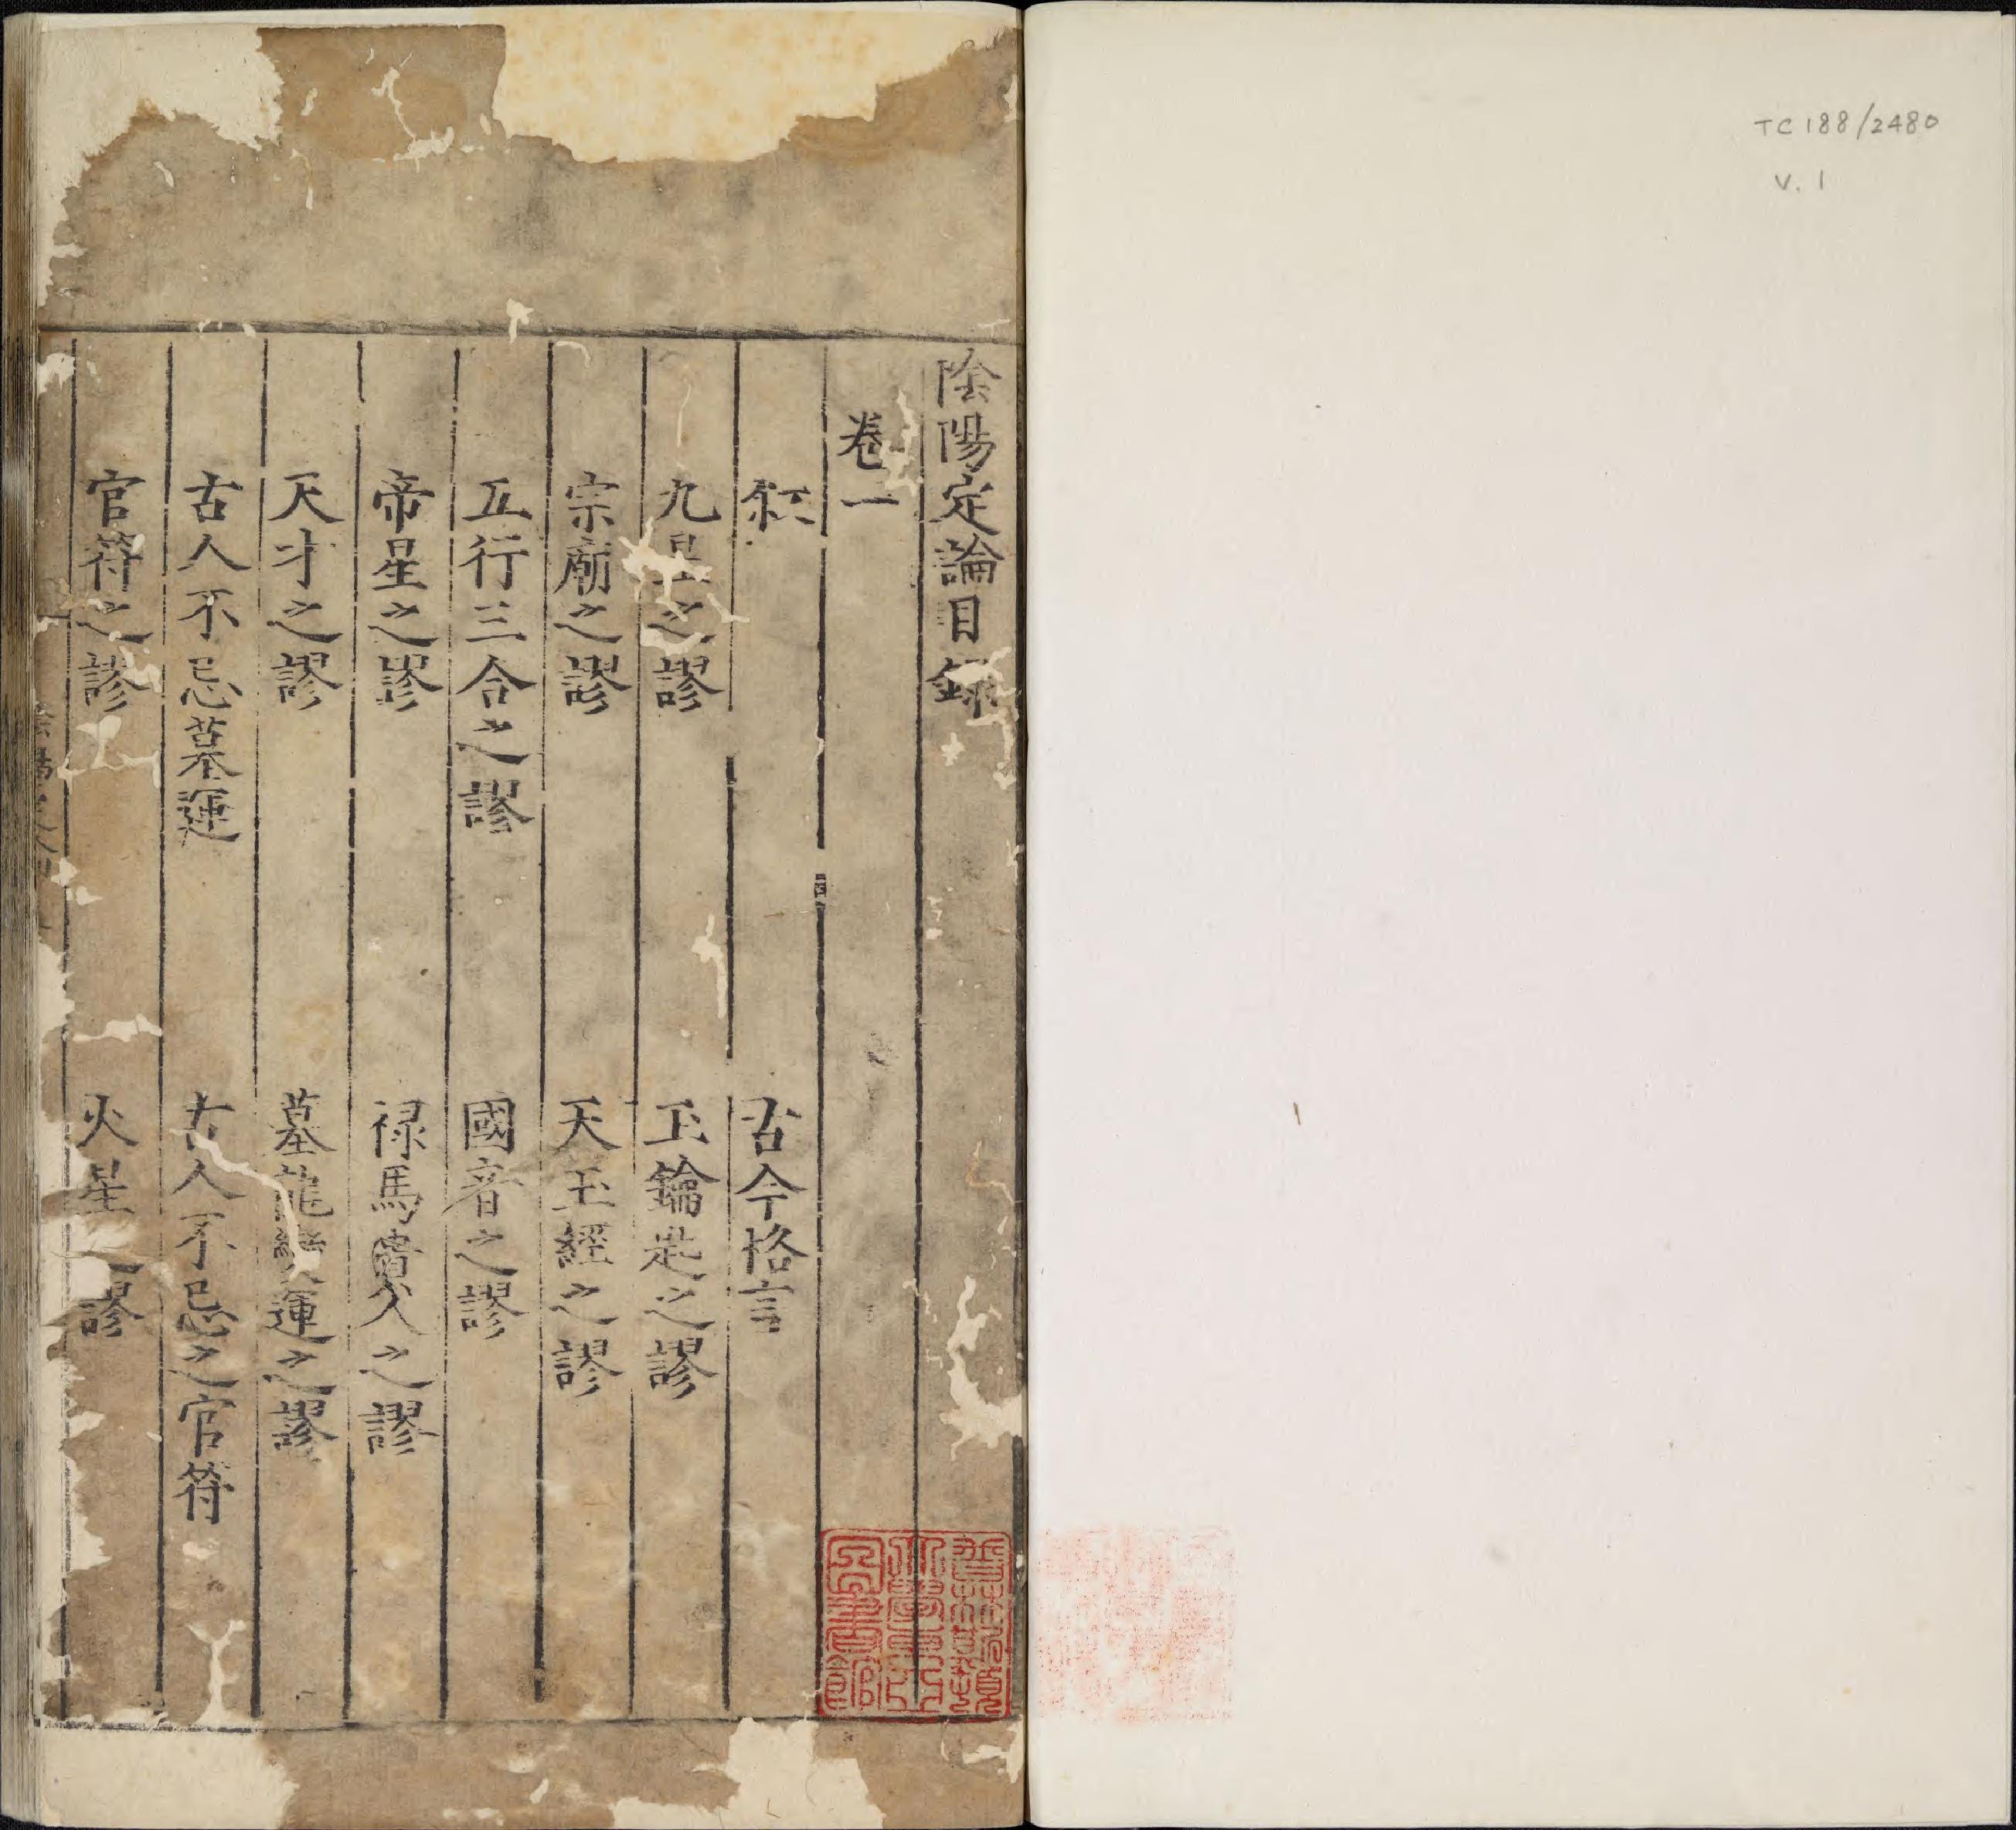 TC 188/2480
V. 1
陰陽定論目録
卷一
敘
古今格言
九星之謬
玉鑰匙之謬
宗廟之謬
天玉經之謬
五行三合之謬
國音之謬
帝星之謬
禄馬貴人之謬
天才之謬
墓龍變運之謬
古人不忌墓運
古人不忌之官符
官符之謬
火星之謬